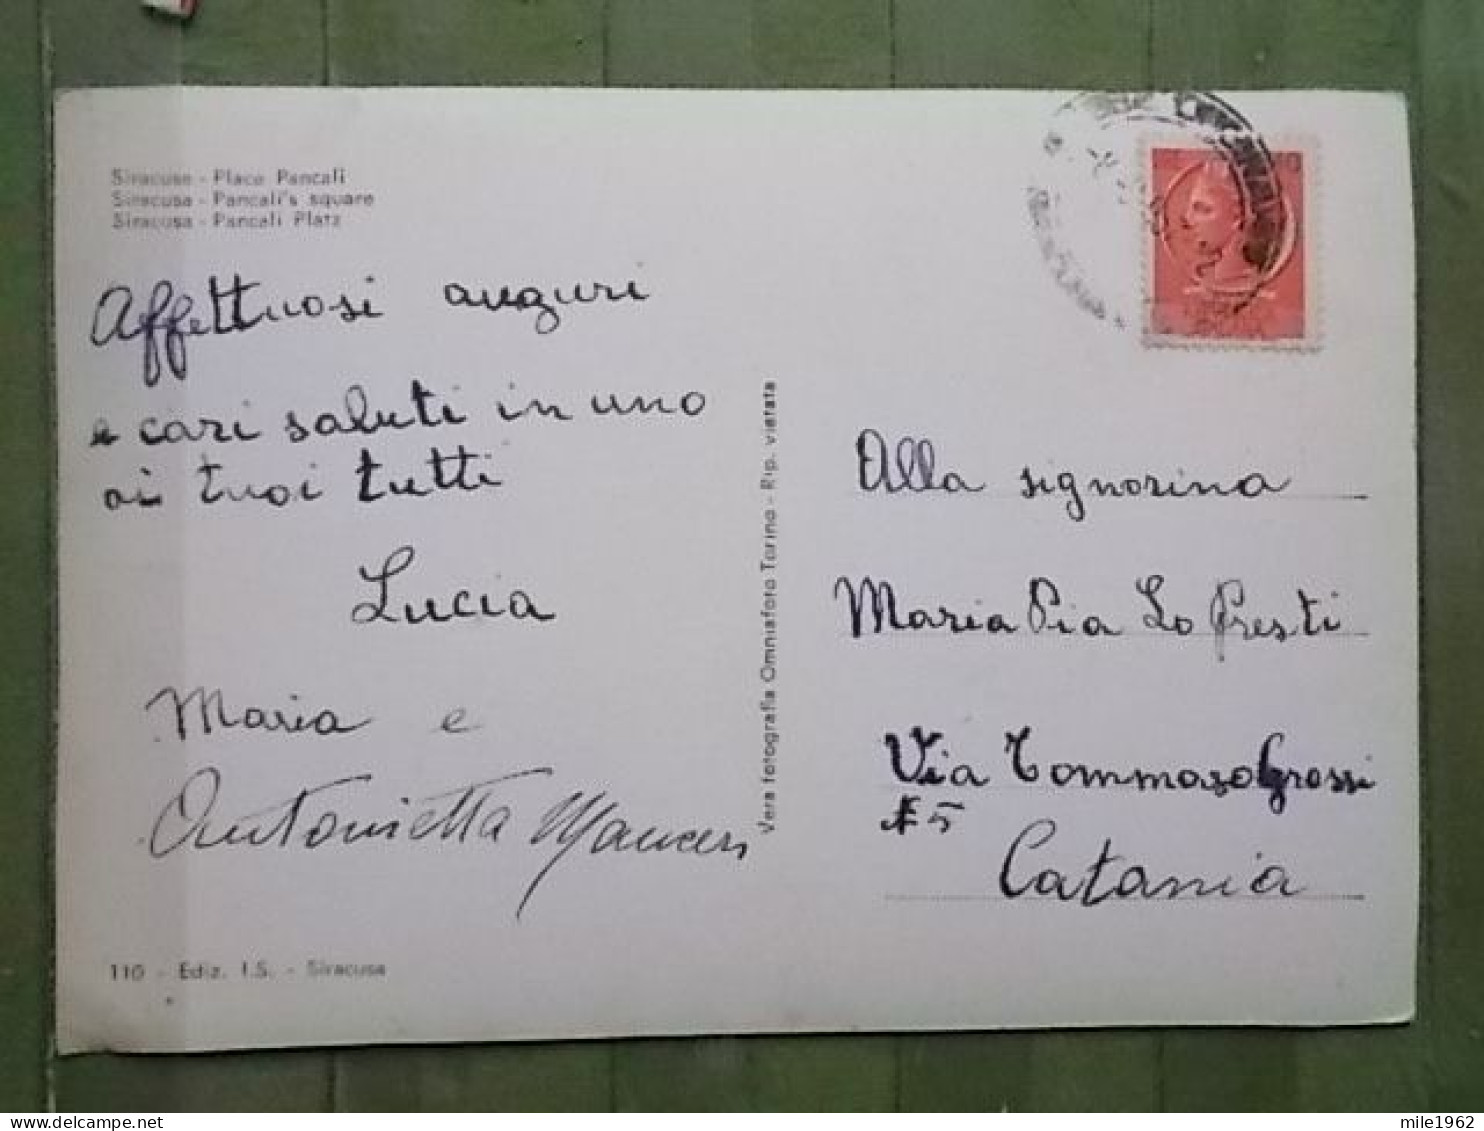 Siracuse - Place Pancali
Siracusa - Pancali's square
Siracusa - Pancali Platz
Affettuosi auguri
e cari saluti in uno
ai tuoi tutti
Lucia
Maria e
Antonietta Manceri
110 - Ediz. I.S. - Siracusa
Vera fotografia Omniafoto Torino - Rip. vietata
Alla signorina
Maria Pia Lo Presti
Via Tommaso Grossi
5
Catania
mile1962